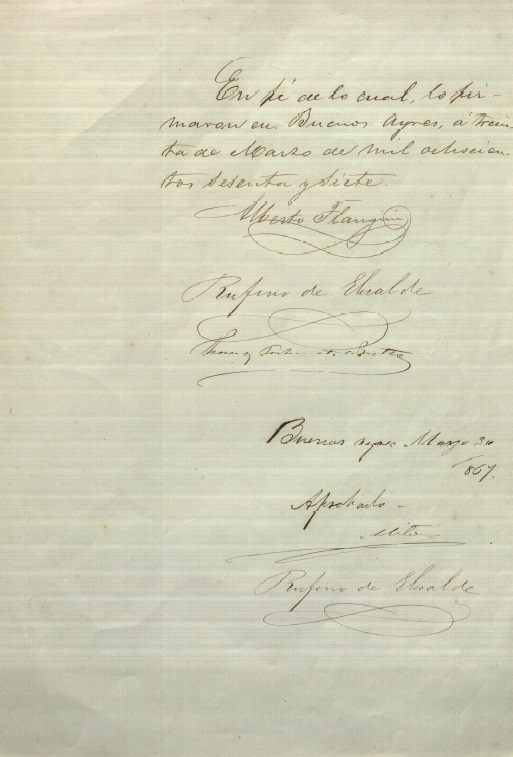 En fé de lo cual, lo fir-
maron en Buenos Ayres, á trein-
ta de Marzo de mil ochocien-
tos sesenta y siete.
Alberto Flangini
Rufino de Elizalde
Buenos Ayres Marzo 30
1867.
Aprobado -
Mitre
Rufino de Elizalde